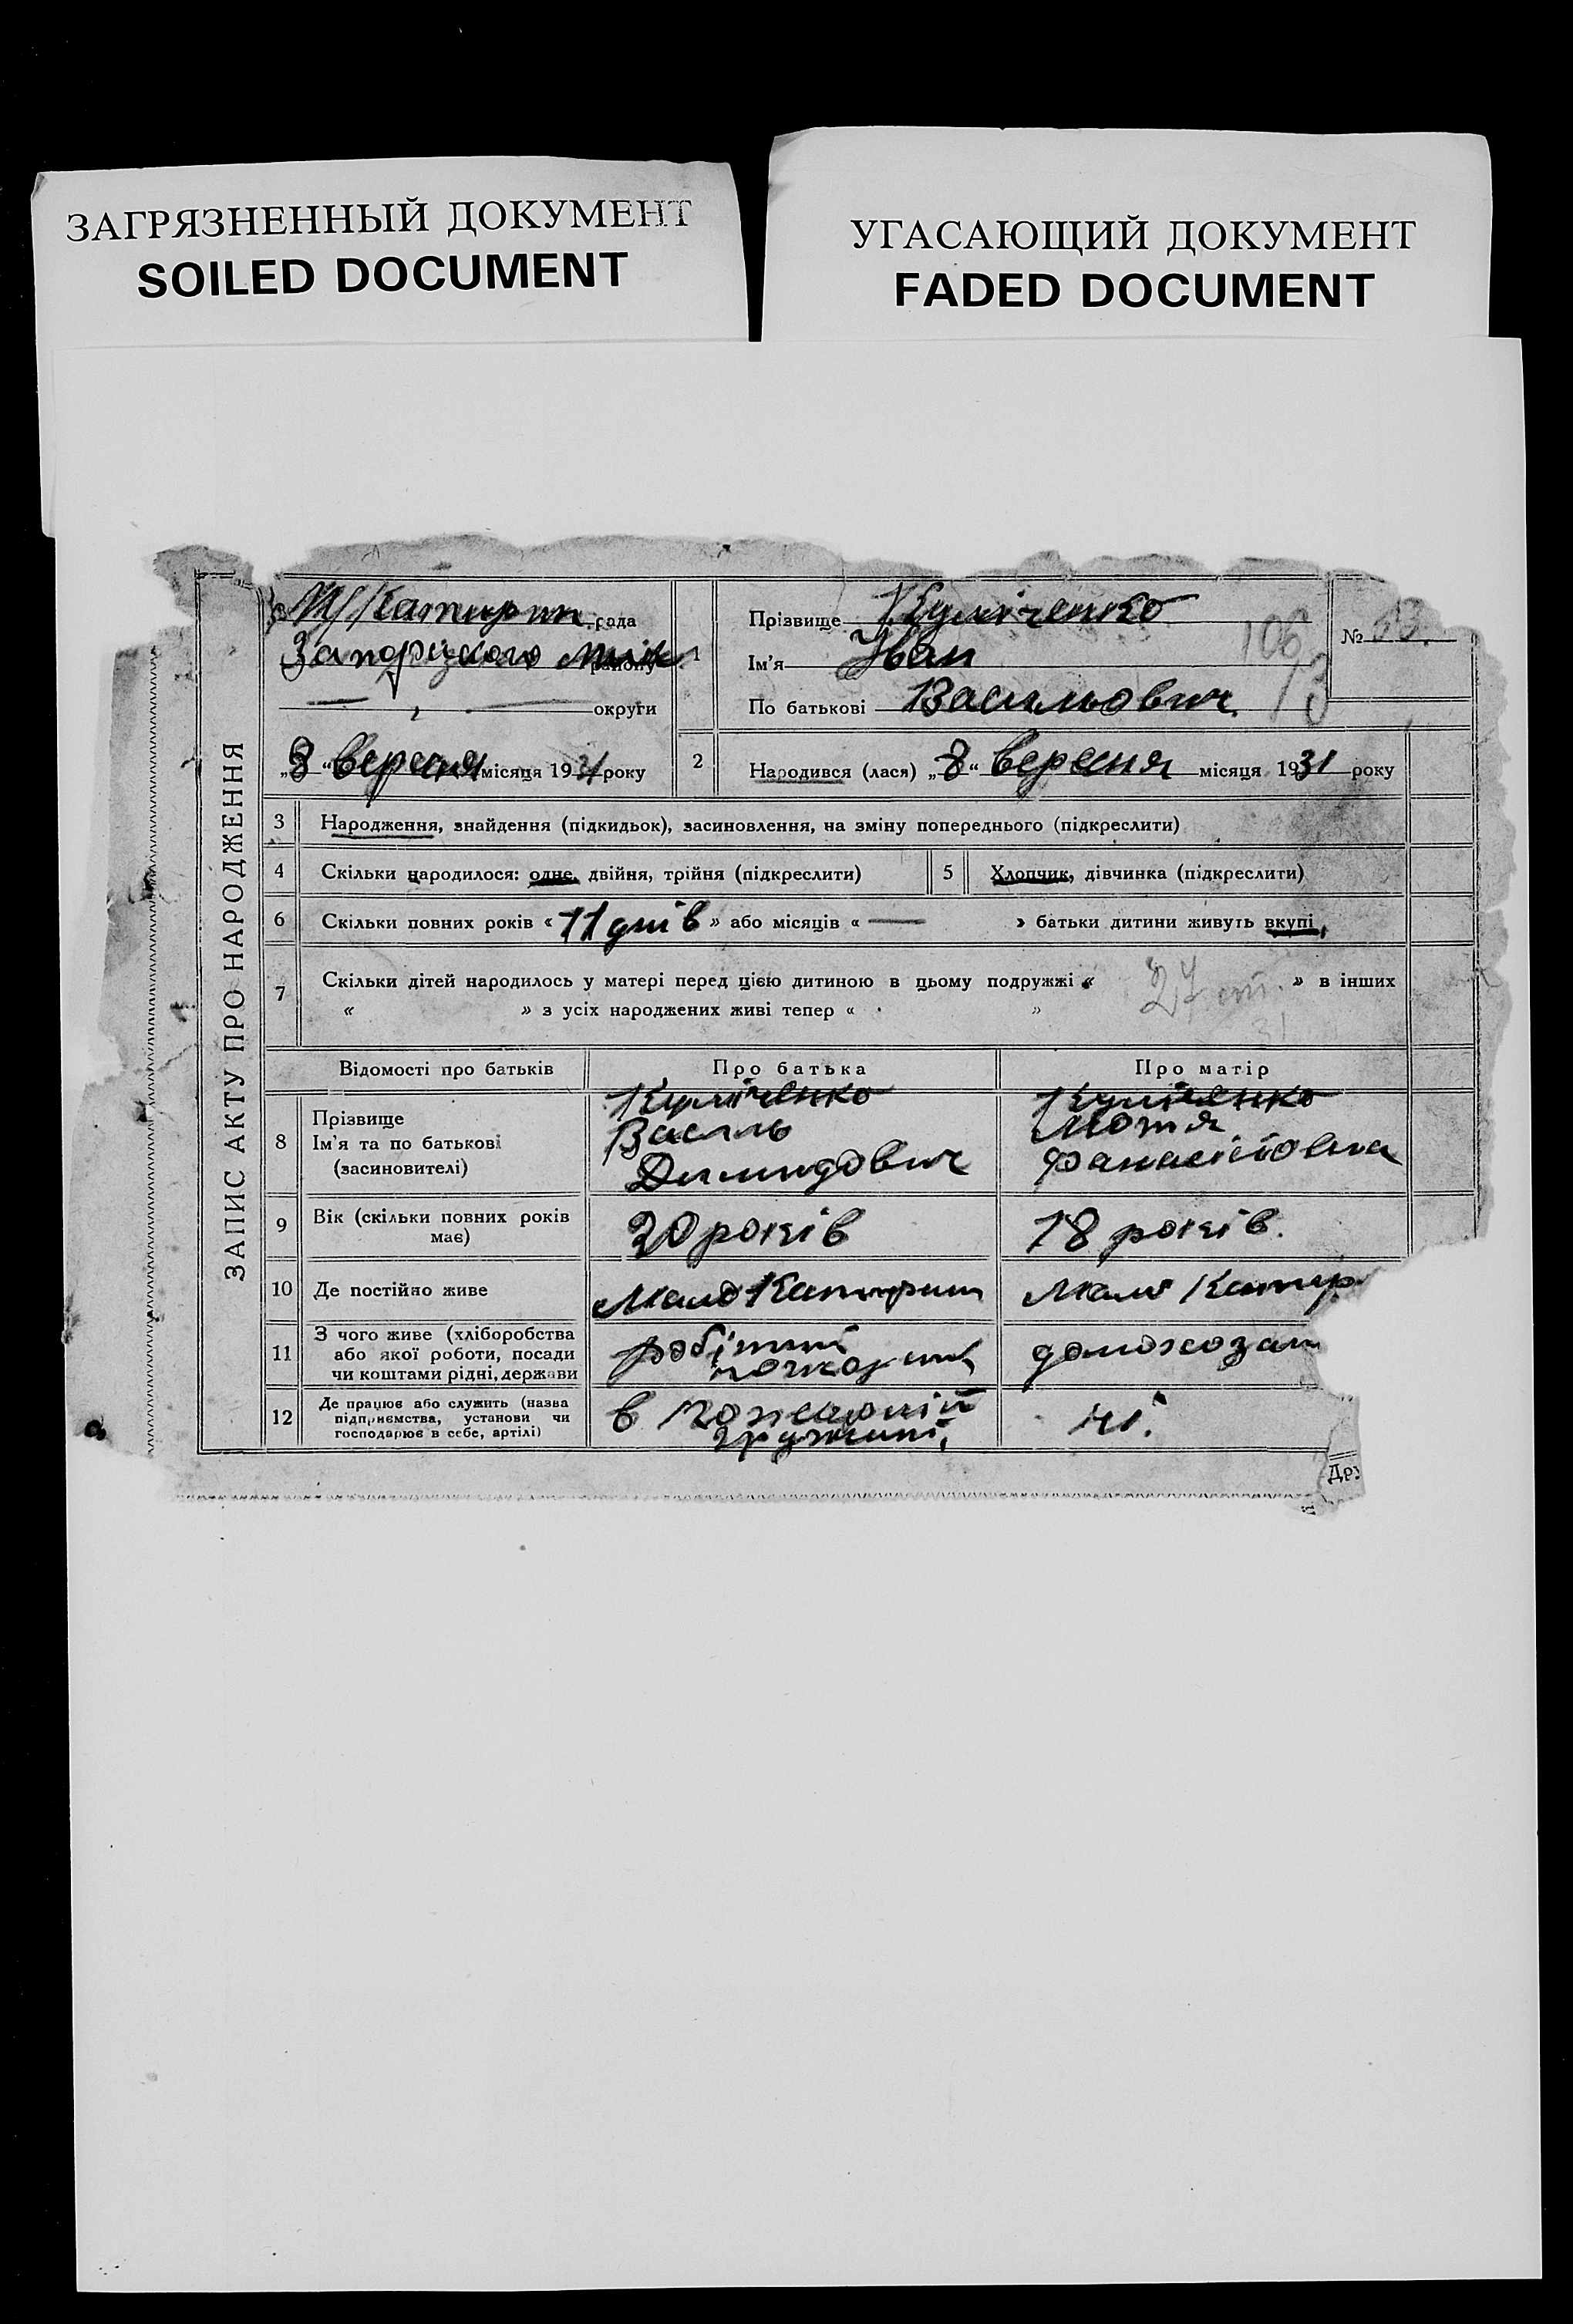 ЗАГРЯЗНЕННЫЙ ДОКУМЕНТ
SOILED DOCUMENT
УГАСАЮЩИЙ ДОКУМЕНТ
FADED DOCUMENT
ЗАПИС АКТУ ПРО НАРОДЖЕННЯ
М/Катирин. рада
Запоріzького район
— , — округи
„8“ вересня місяця 1931 року
1
Прізвище Куліченко
Ім'я Іван
По батькові Васильович
106
№ 53.
2
Народився (лася) „8“ вересня місяця 1931 року
3 Народження, знайдення (підкидьок), засиновлення, на зміну попереднього (підкреслити)
4 Скільки народилося: одне, двійня, трійня (підкреслити)
5 Хлопчик, дівчинка (підкреслити)
6 Скільки повних років « 11 днів » або місяців « — » батьки дитини живуть вкупі,
7 Скільки дітей народилось у матері перед цією дитиною в цьому подружжі « » в інших
« » з усіх народжених живі тепер « »
Відомості про батьків Про батька Про матір
8 Прізвище
Ім'я та по батькові
(засновителі)
Куліченко
Василь
Демидович
Куліченко
Мотя
Фанасіївна
9 Вік (скільки повних років
має)
20 років
18 років.
10 Де постійно живе Мало Катирин Мало Катир
11 З чого живе (хліборобства
або якої роботи, посади
чи коштами рідні, держави
робітник
домохозяй
12 Де працює або служить (назва
підприємства, установи чи
господарює в себе, артілі)
в пожарній
дружині,
ні.
Дру